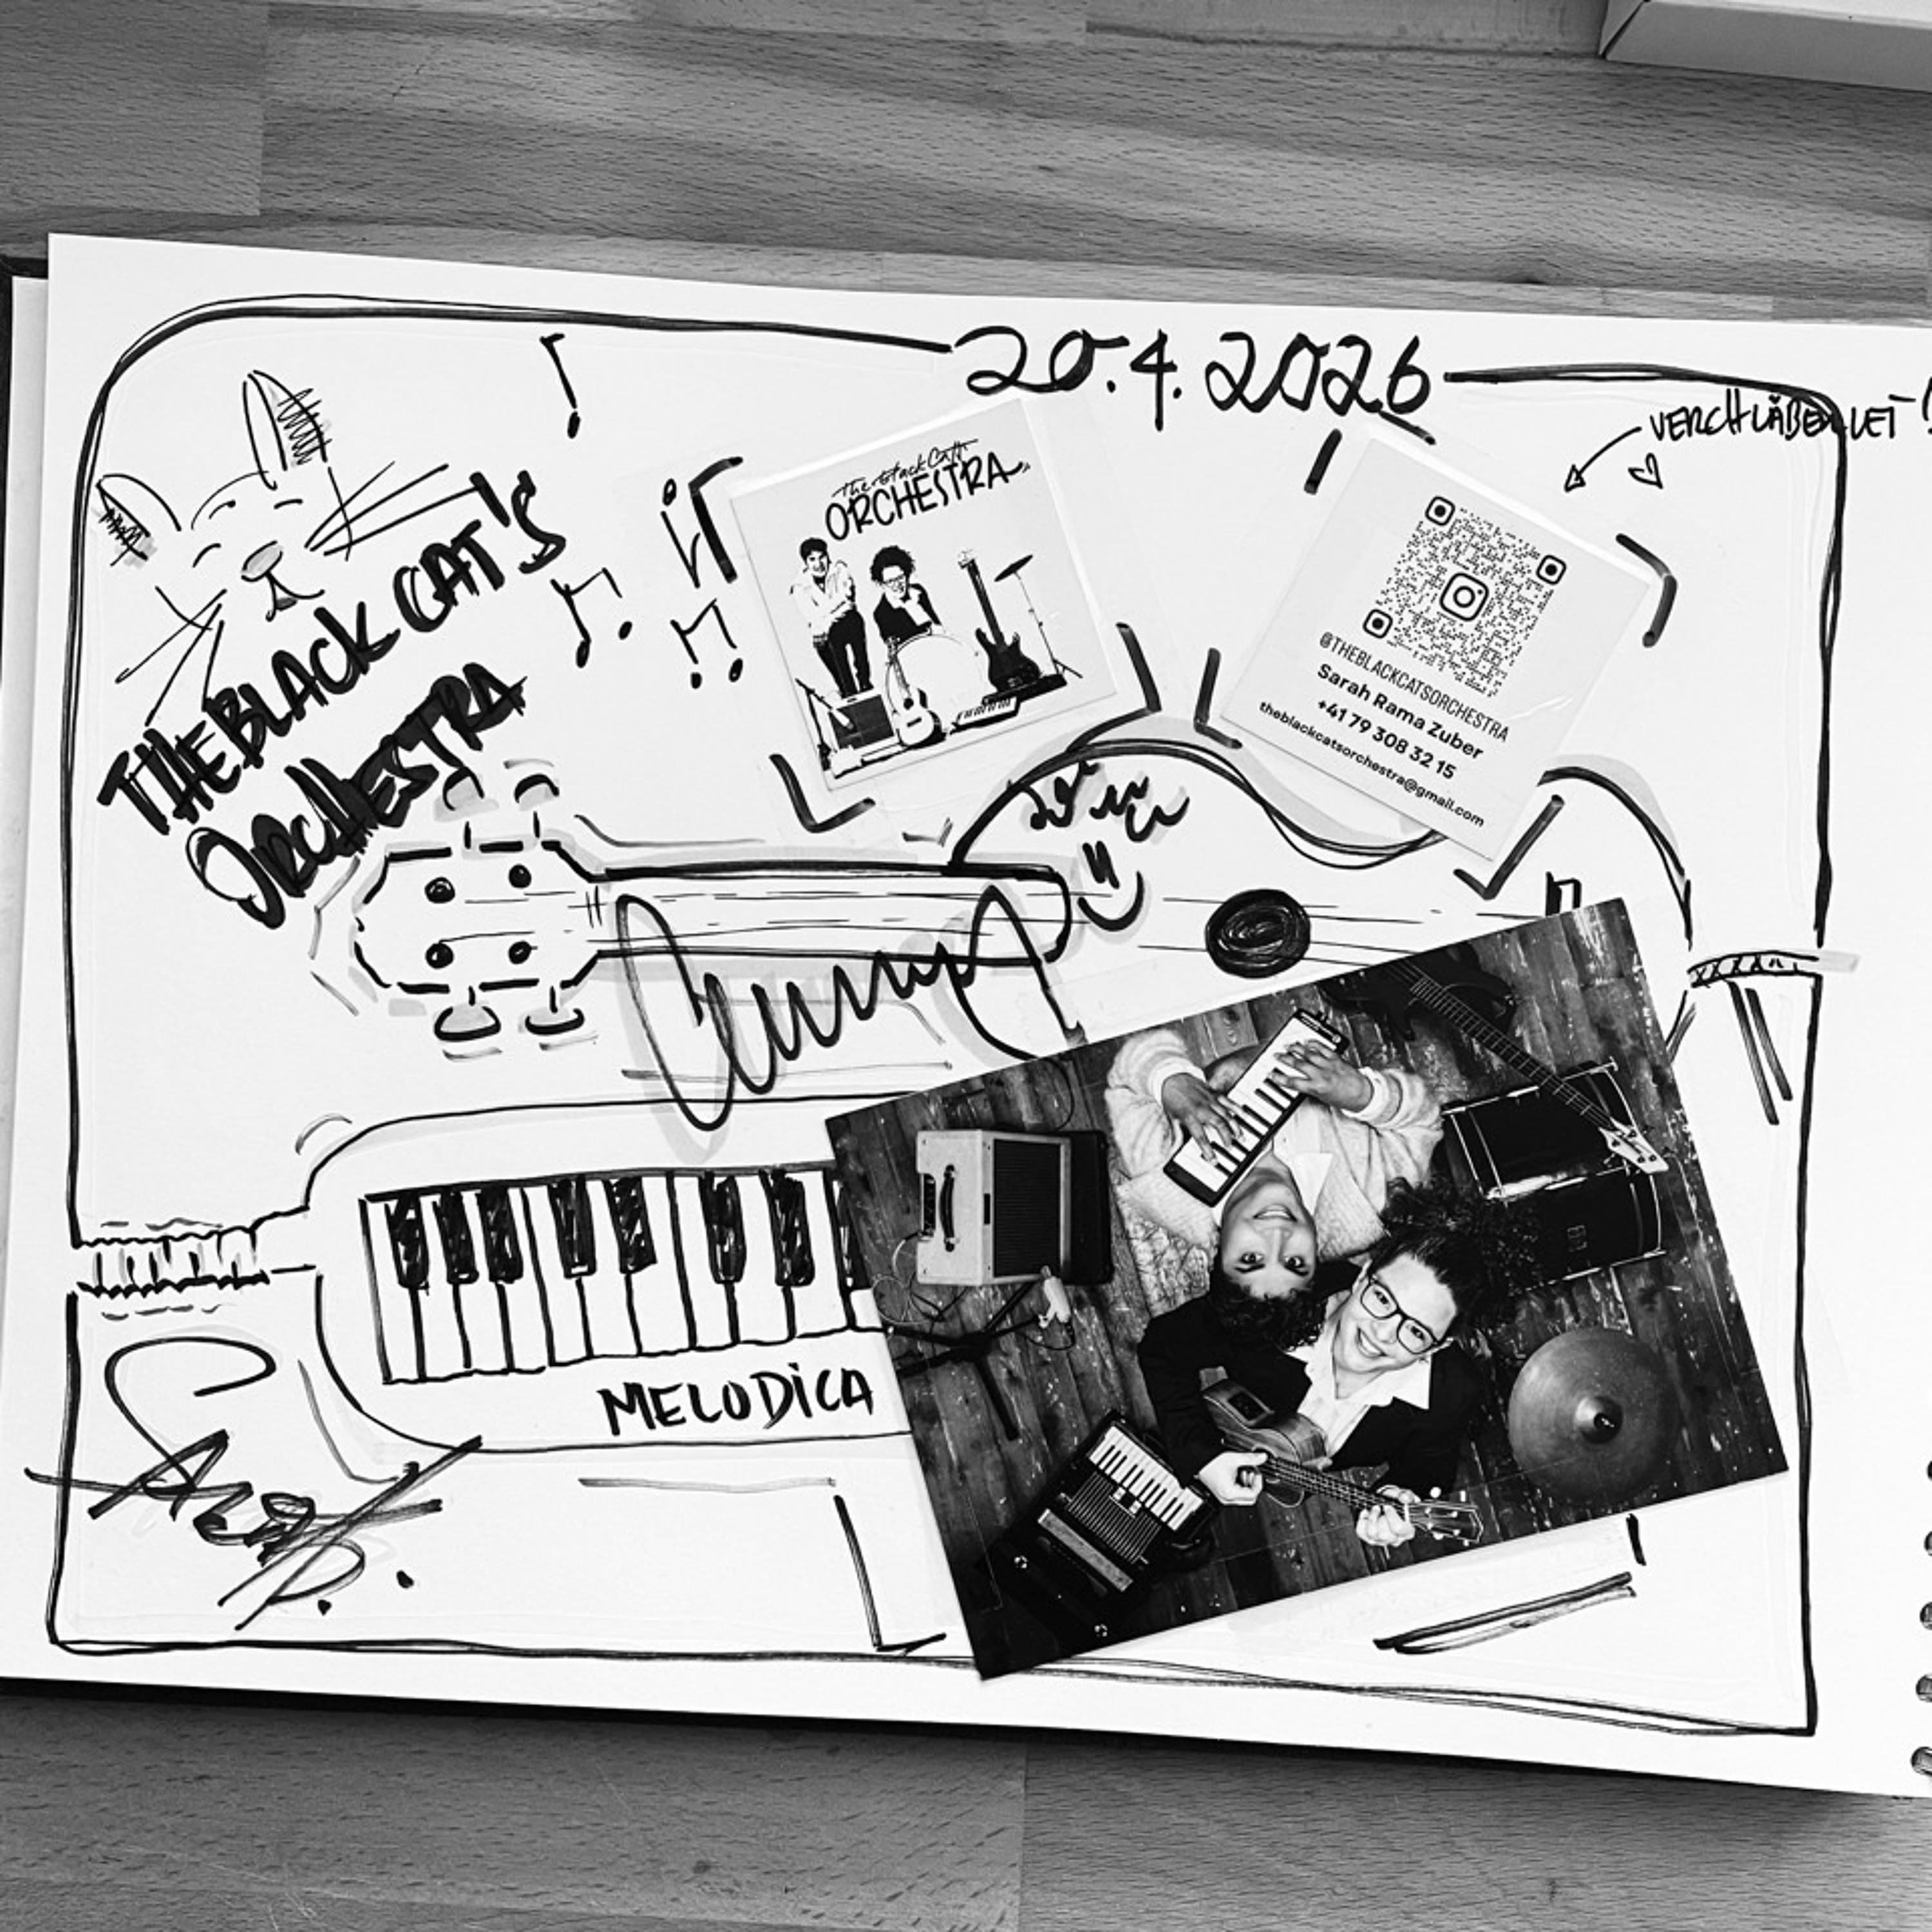 20.4.2026
VERCHLÄBERLET
THE BLACK CAT'S
ORCHESTRA
The Black Cat's
ORCHESTRA
@THEBLACKCATSORCHESTRA
Sarah Rama Zuber
+41 79 308 32 15
theblackcatsorchestra@gmail.com
MELODICA